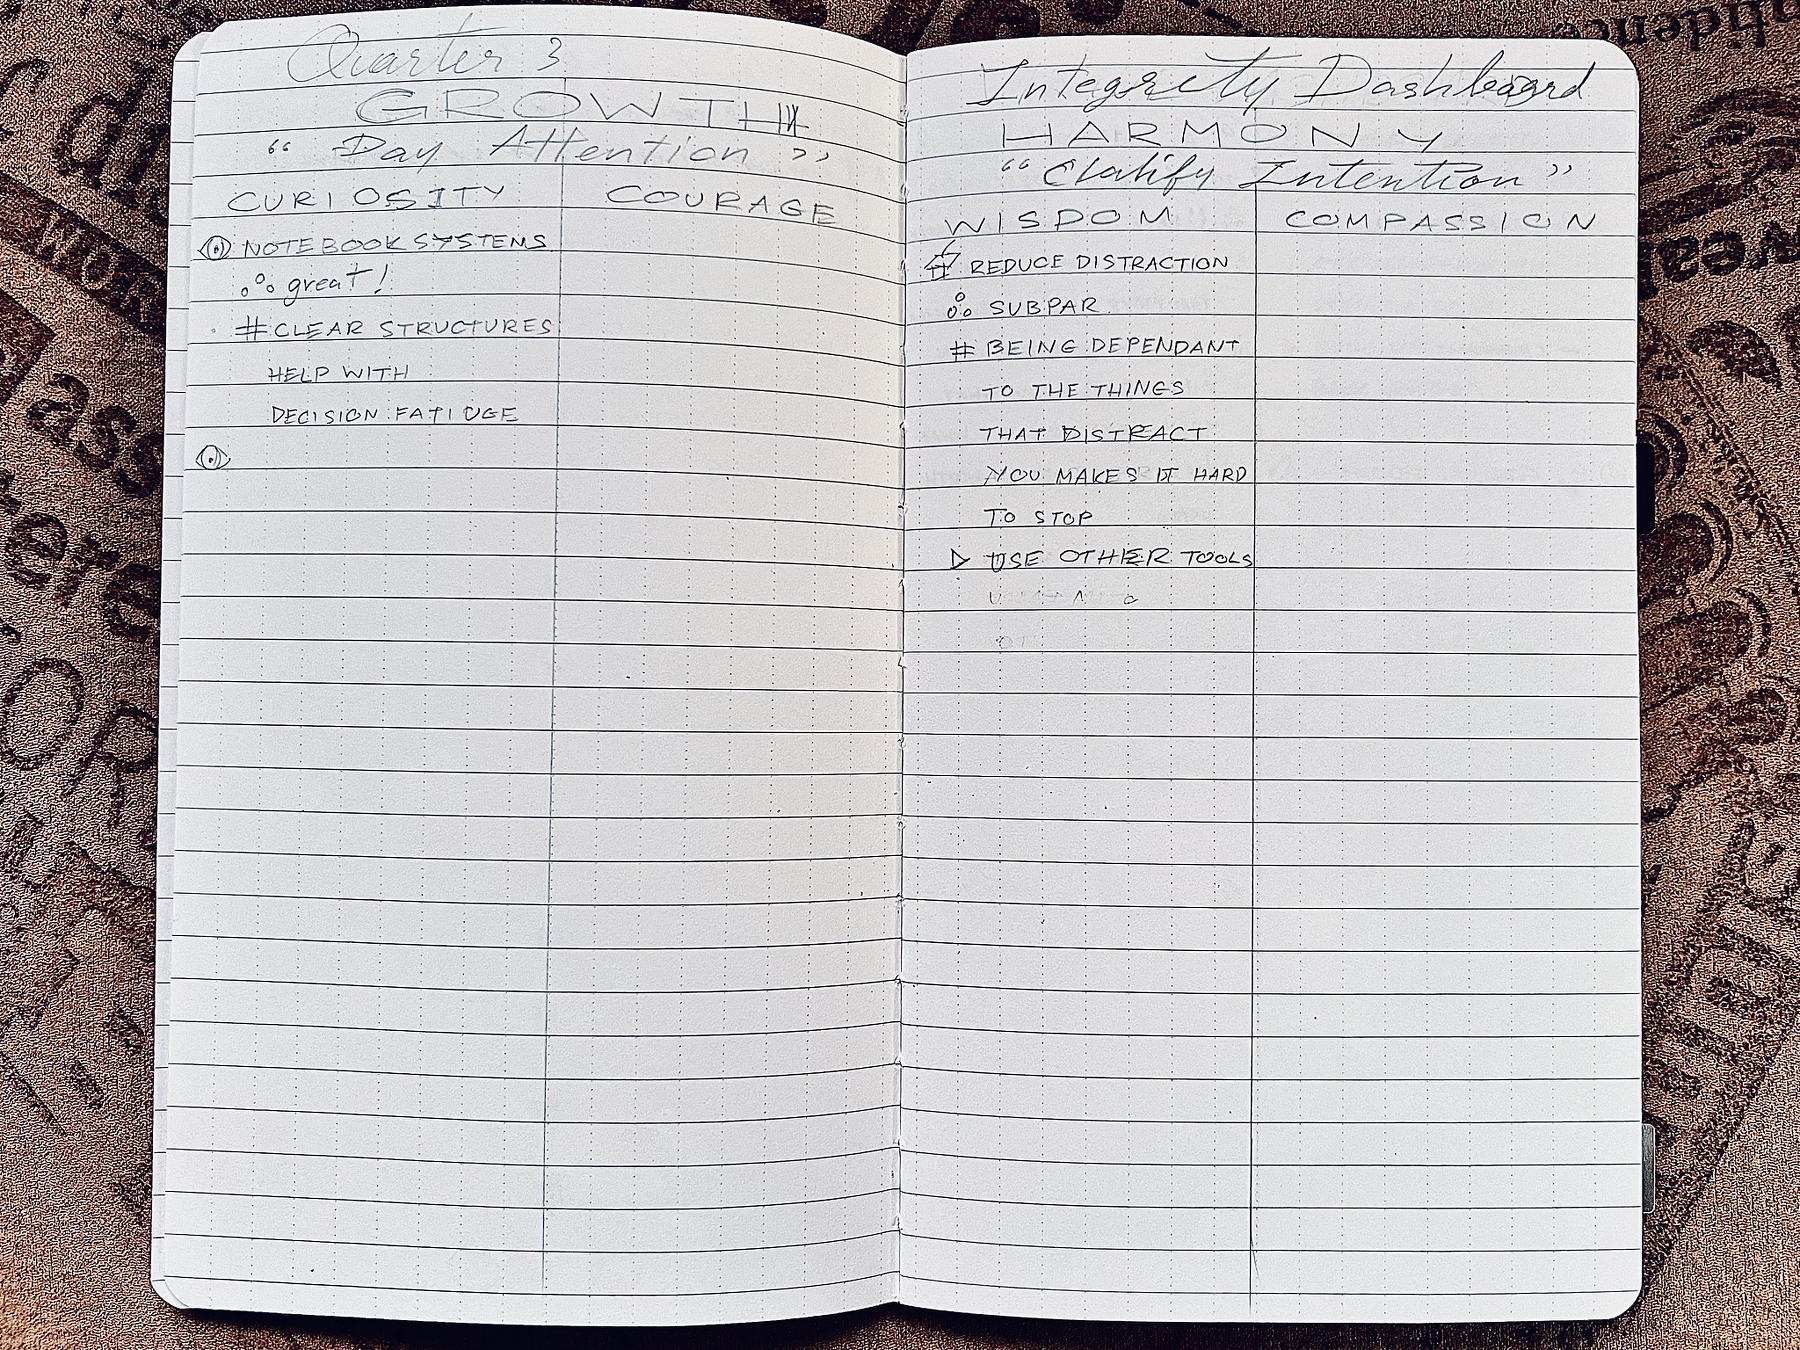 Quarter 3
GROWTH
“ Day Attention ”
CURIOSITY
COURAGE
NOTEBOOK SYSTEMS
great!
# CLEAR STRUCTURES
HELP WITH
DECISION FATIUGE
Integrity Dashboard
HARMONY
“Clarify Intention”
WISDOM
COMPASSION
REDUCE DISTRACTION
SUBPAR
# BEING DEPENDANT
TO THE THINGS
THAT DISTRACT
YOU MAKES IT HARD
TO STOP
▷ USE OTHER TOOLS